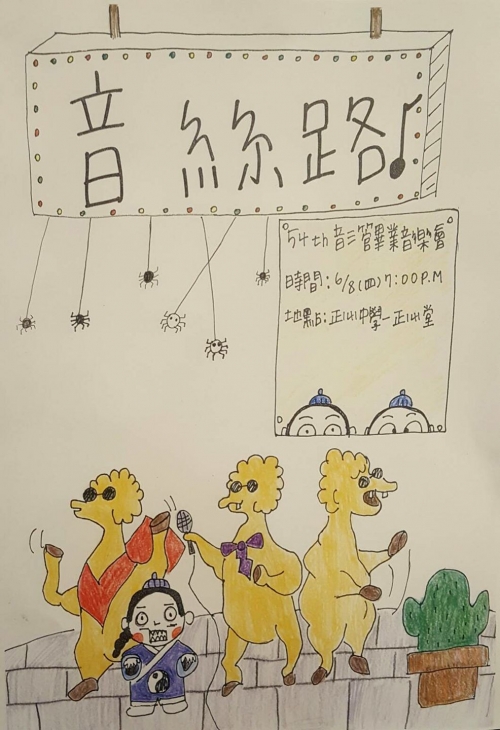 音絲路
54th 音三管畢業音樂會
時間:6/8(四)7:00P.M
地點:正心中學-正心堂